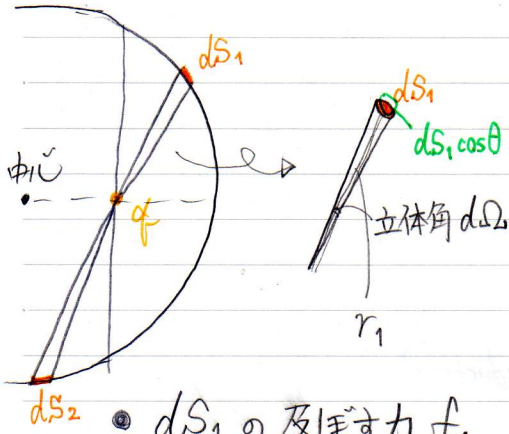 dS₁
中心
q
dS₂
dS₁
dS₁cosθ
立体角 dΩ
r₁
● dS₁ の及ぼす力 f₁